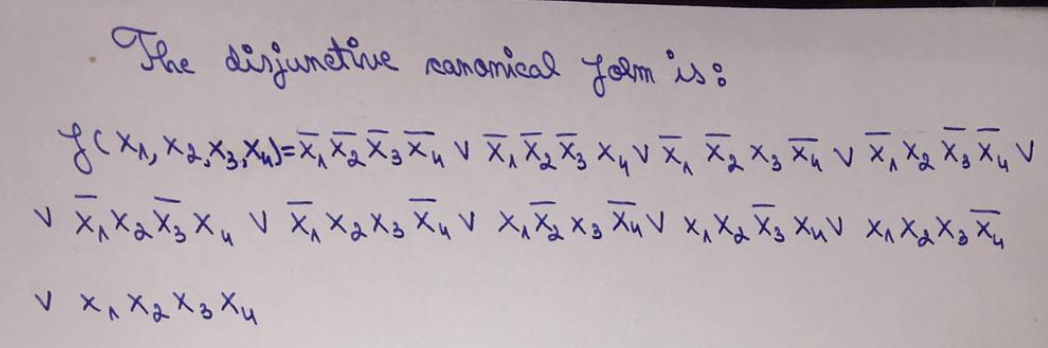 The disjunctive canonical form is:
f(x₁, x₂, x₃, x₄) = x̅₁ x̅₂ x̅₃ x̅₄ ∨ x̅₁ x̅₂ x̅₃ x₄ ∨ x̅₁ x̅₂ x₃ x̅₄ ∨ x̅₁ x₂ x̅₃ x̅₄ ∨
∨ x̅₁ x₂ x̅₃ x₄ ∨ x̅₁ x₂ x₃ x̅₄ ∨ x₁ x̅₂ x₃ x̅₄ ∨ x₁ x₂ x̅₃ x₄ ∨ x₁ x₂ x₃ x̅₄
∨ x₁ x₂ x₃ x₄